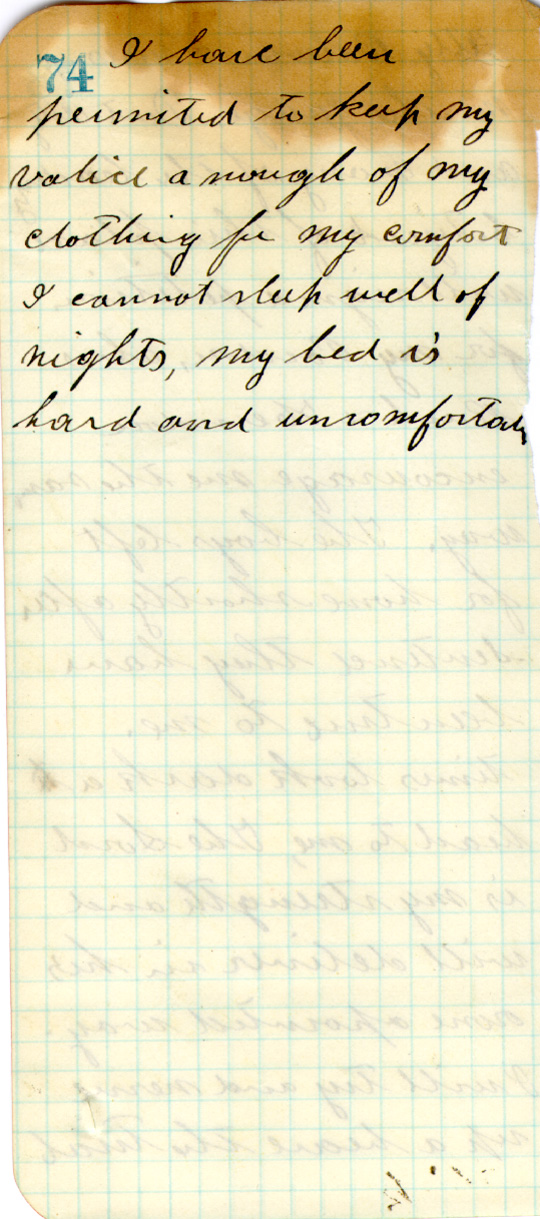 74 I have been
permited to keep my
valice a nough of my
clothing for my comfort
I cannot sleep well of
nights, my bed is
hard and uncomfortab